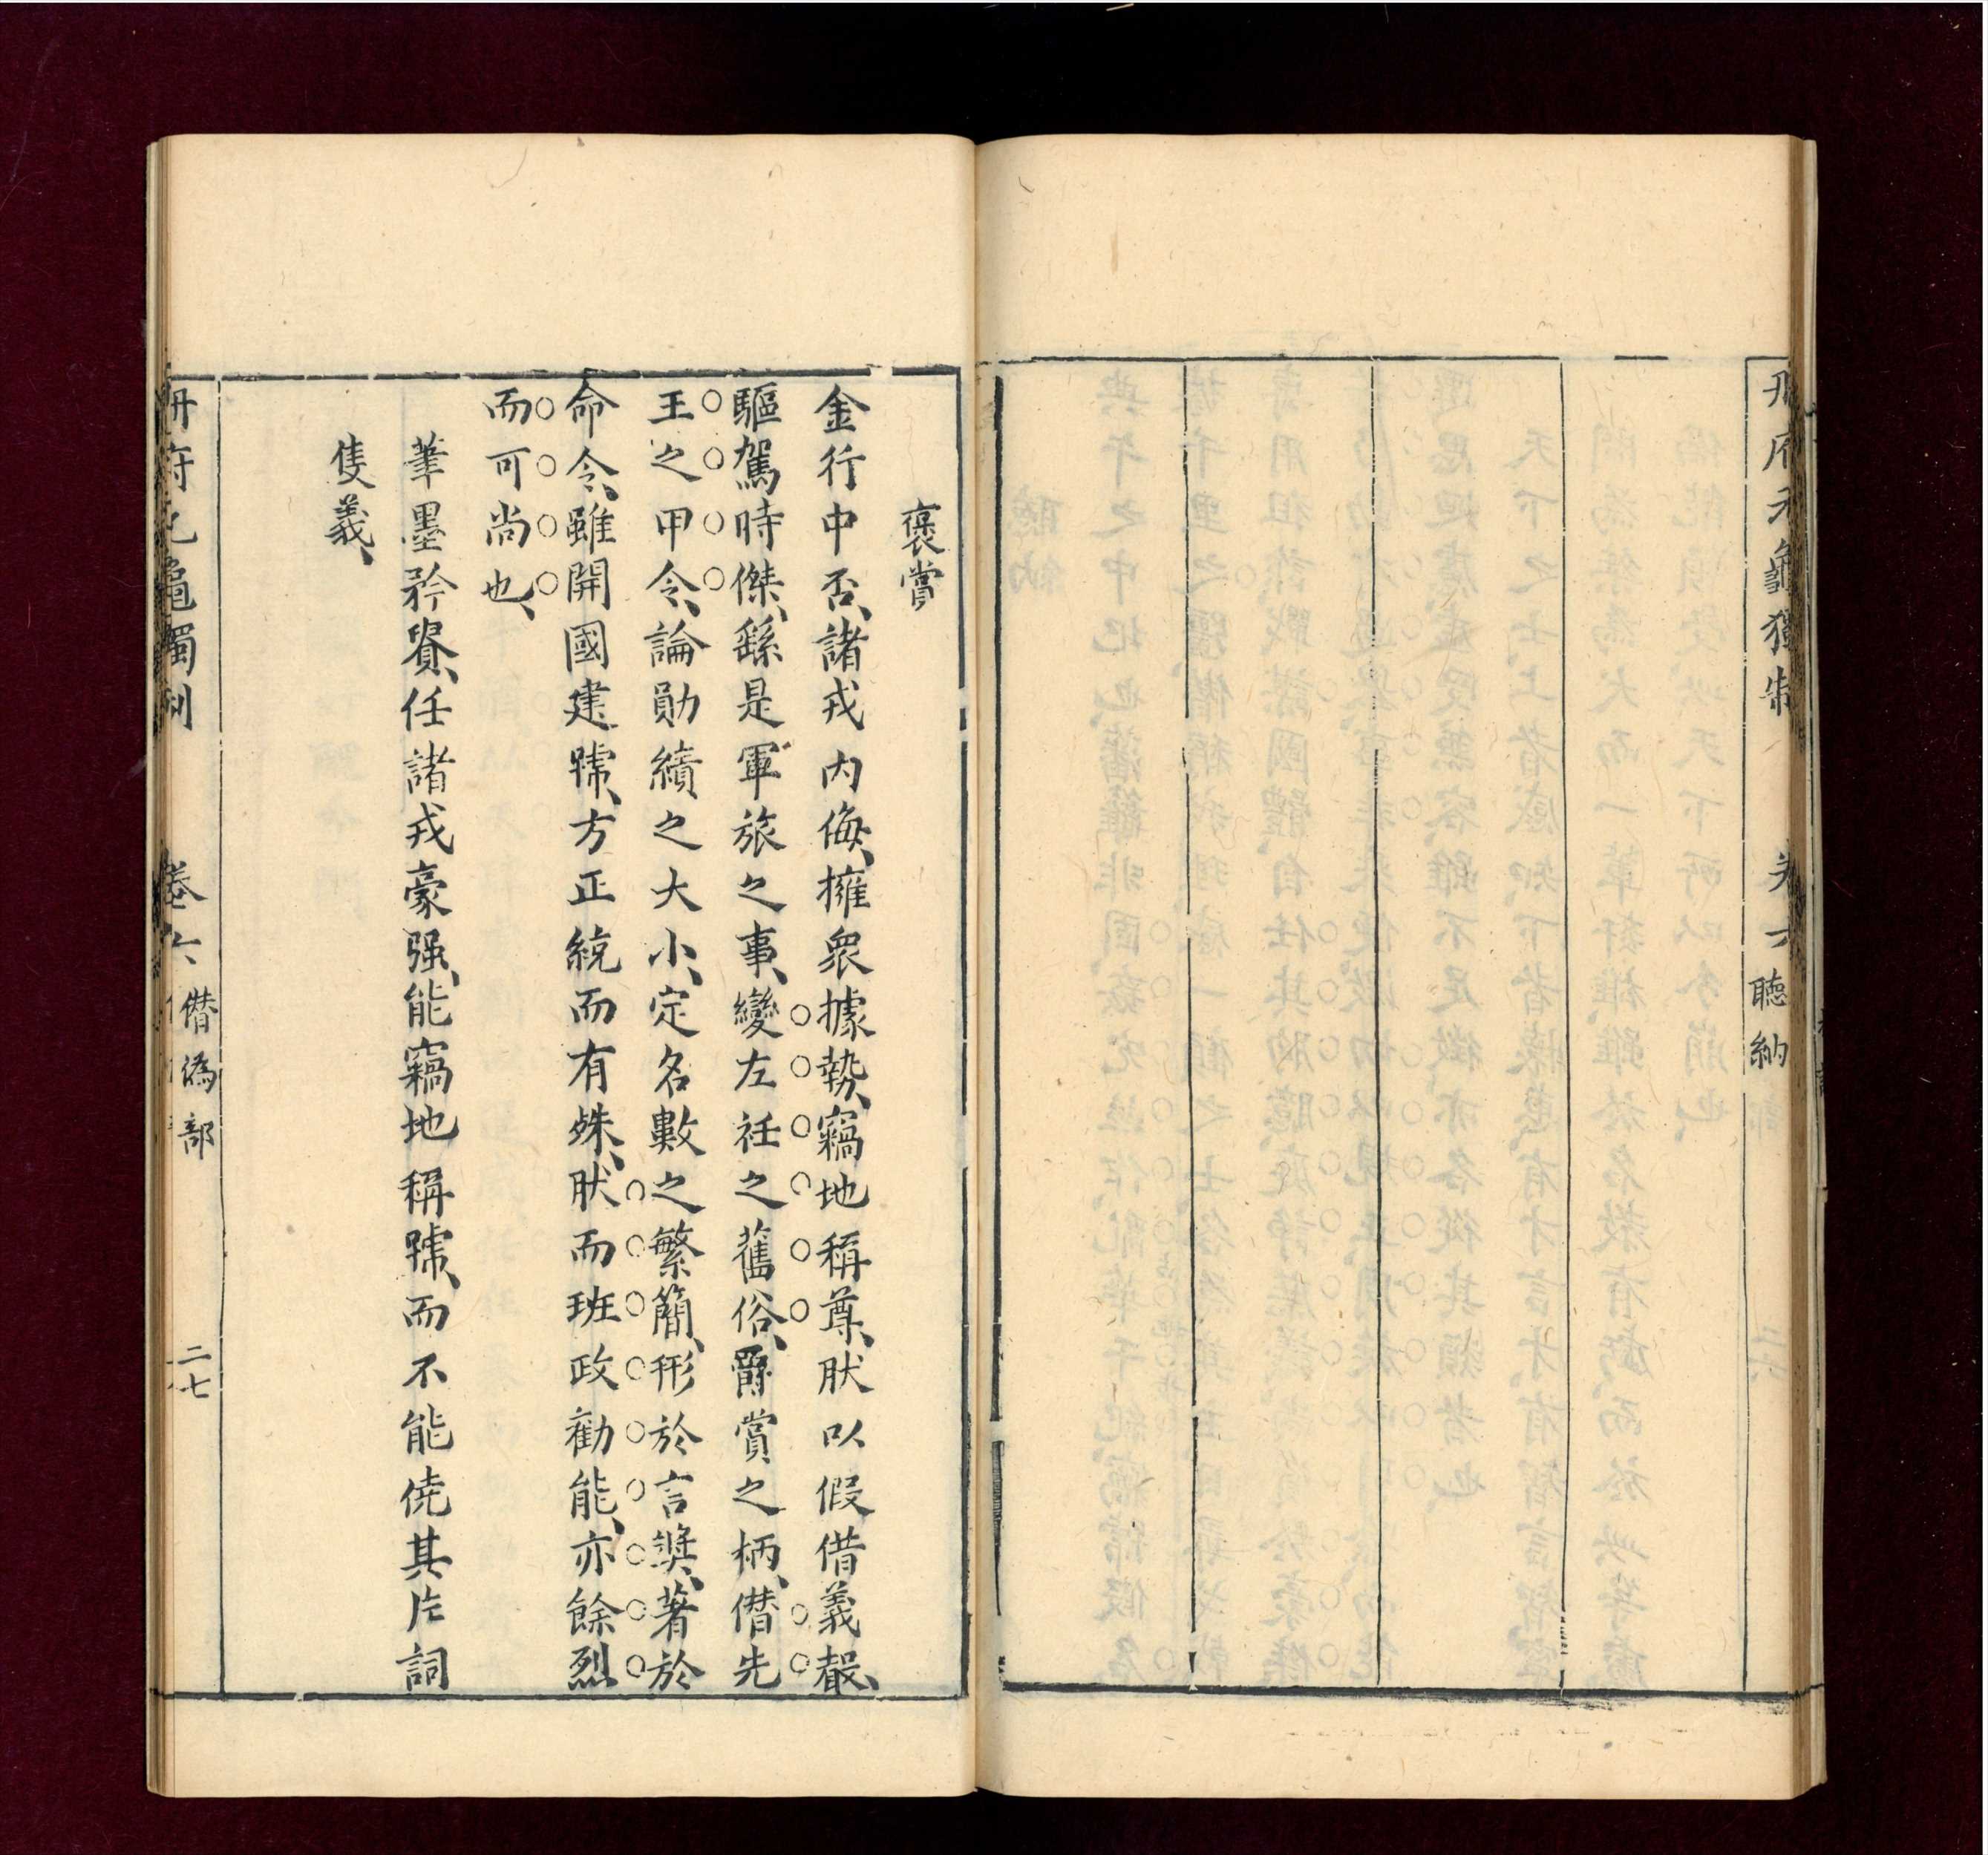 冊府元龜獨制
卷六
聽納
褒賞
金行中否、諸戎內侮、擁衆據勢、竊地稱尊、肰以假借義聲、
驅駕時傑、繇是軍旅之事、變左衽之舊俗、爵賞之柄、僣先
王之甲令、論勛績之大小、定名數之繁簡、形於言獎、著於
命令、雖開國建號、方正統而有殊、肰而班政勸能、亦餘烈
而可尚也、
筆墨矜貴、任諸戎豪强、能竊地稱號、而不能僥其片詞
隻義、
冊府元龜獨制
卷六
僣僞部
二七